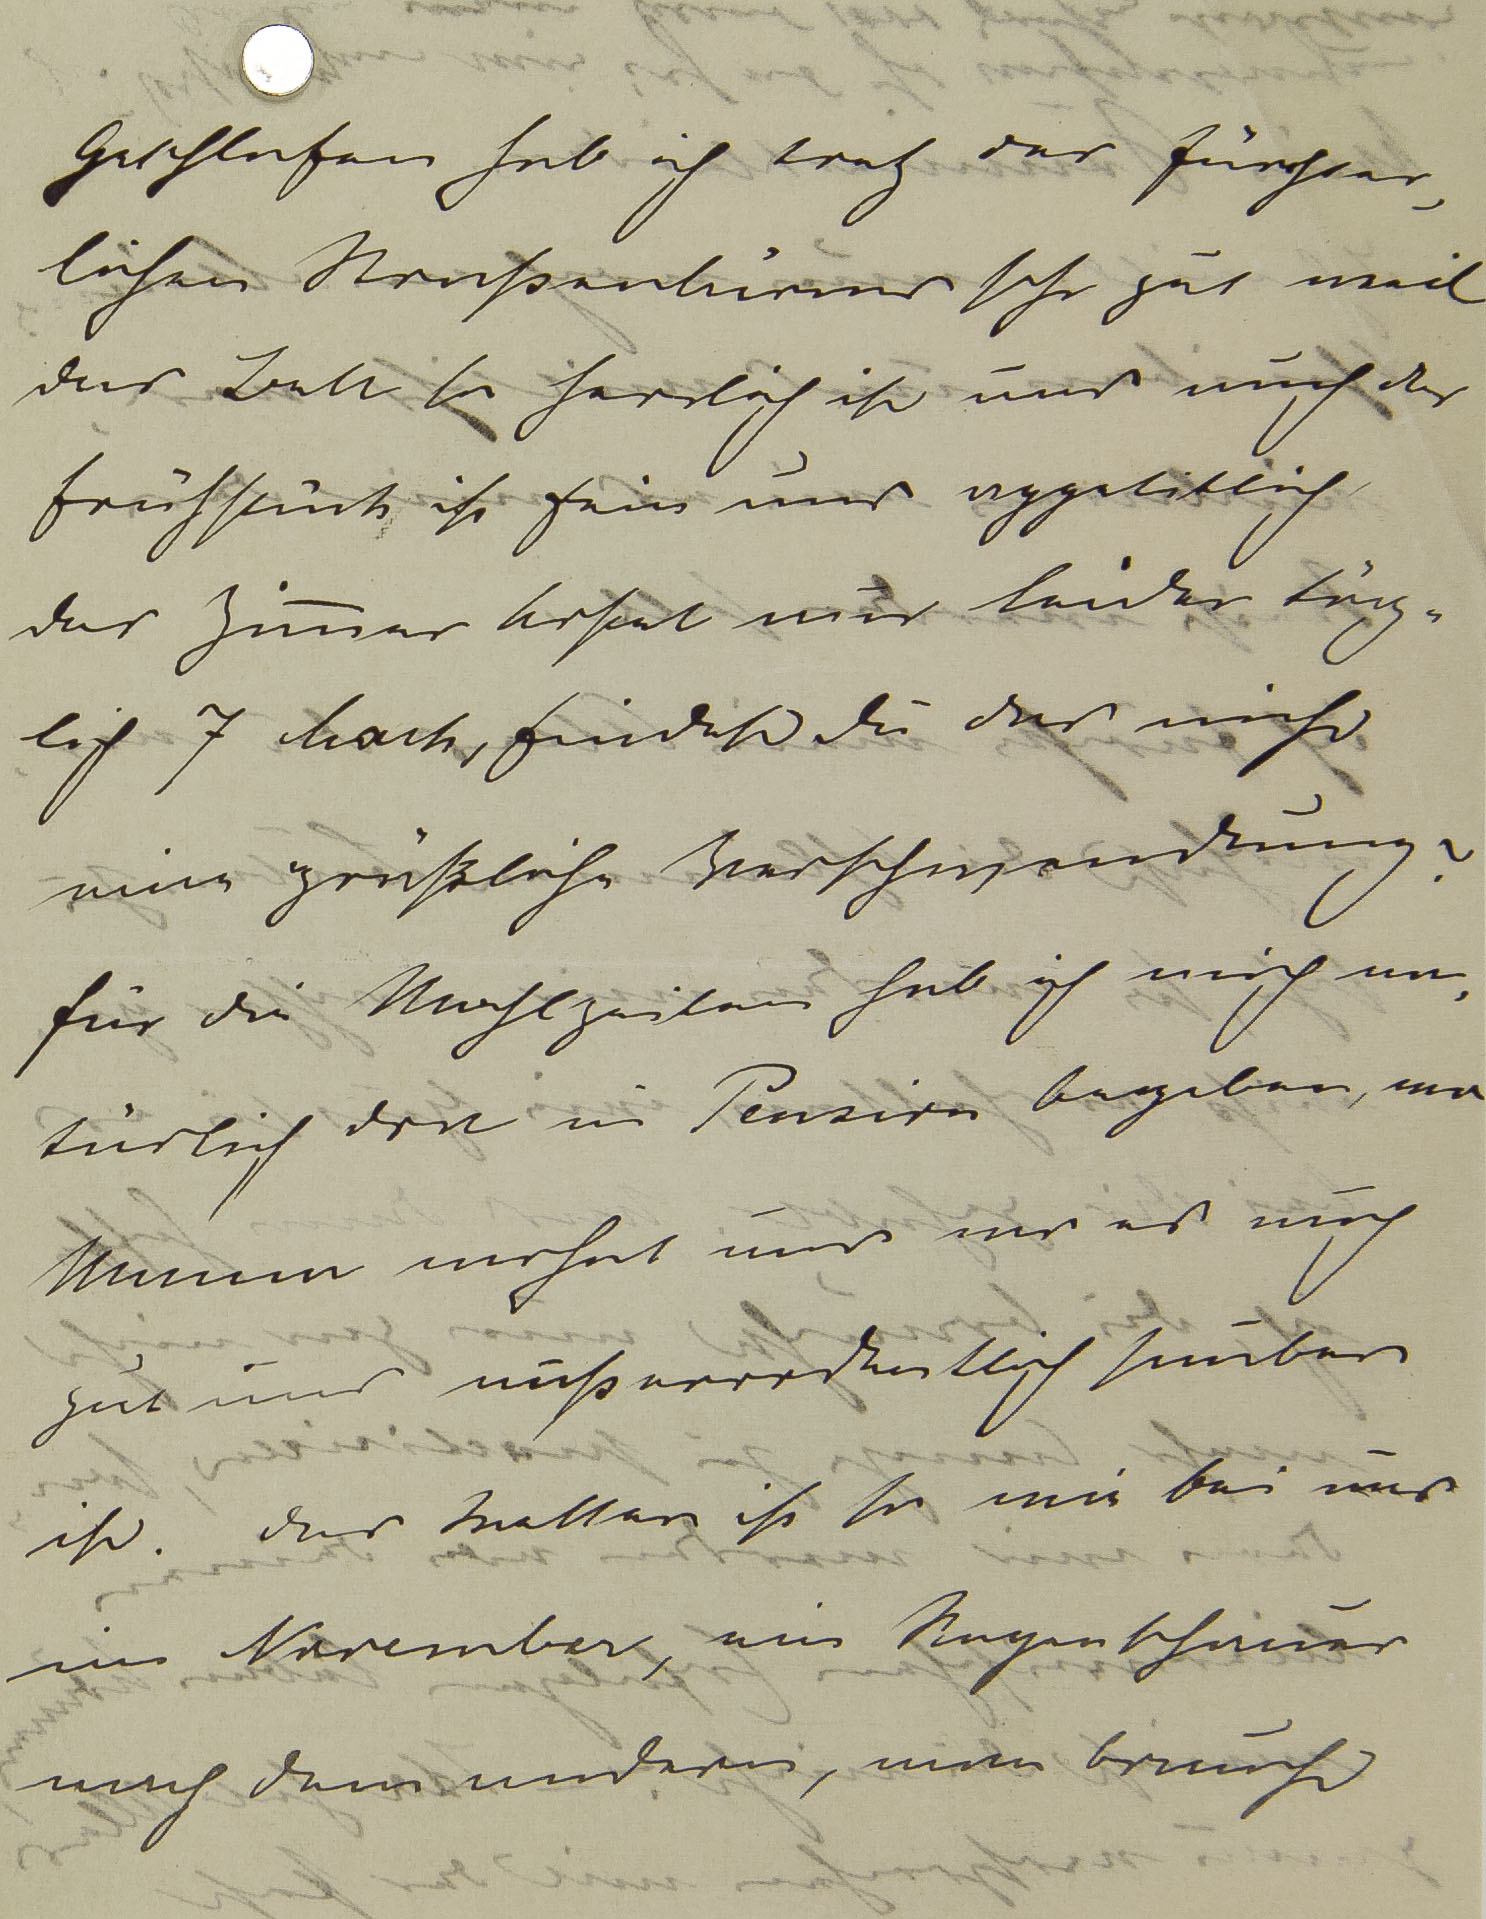 Geschlafen hab ich trotz des fürchter-
lichen Straßenlärms sehr gut weil
das Bett so herrlich ist und auch das
Frühstück ist fein und appetitlich
das Zimmer kostet nur leider täg-
lich 7 Mark, findest du das nicht
eine gräßliche Verschwendung?
für die Mahlzeiten hab ich mich na-
türlich dort in Pension begeben, wo
Mumma wohnt und wo es auch
gut und außerordentlich sauber
ist. das Wetter ist so wie bei uns
im November, ein Regenschauer
nach dem andern, man braucht